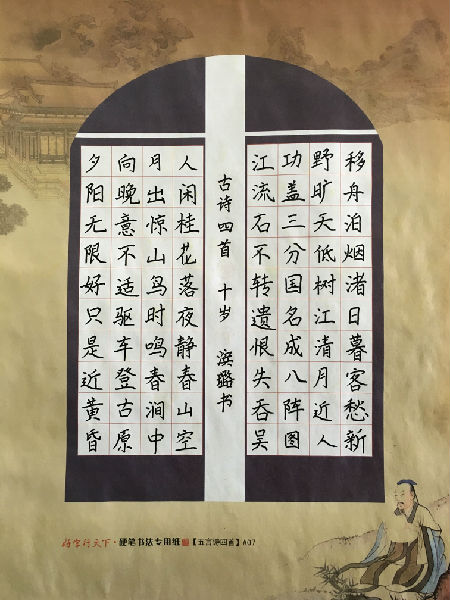 移舟泊烟渚日暮客愁新
野旷天低树江清月近人
功盖三分国名成八阵图
江流石不转遗恨失吞吴
古诗四首 十岁 璐书
人闲桂花落夜静春山空
月出惊山鸟时鸣春涧中
向晚意不适驱车登古原
夕阳无限好只是近黄昏
字行天下·硬笔书法专用纸【五言诗四首】A07